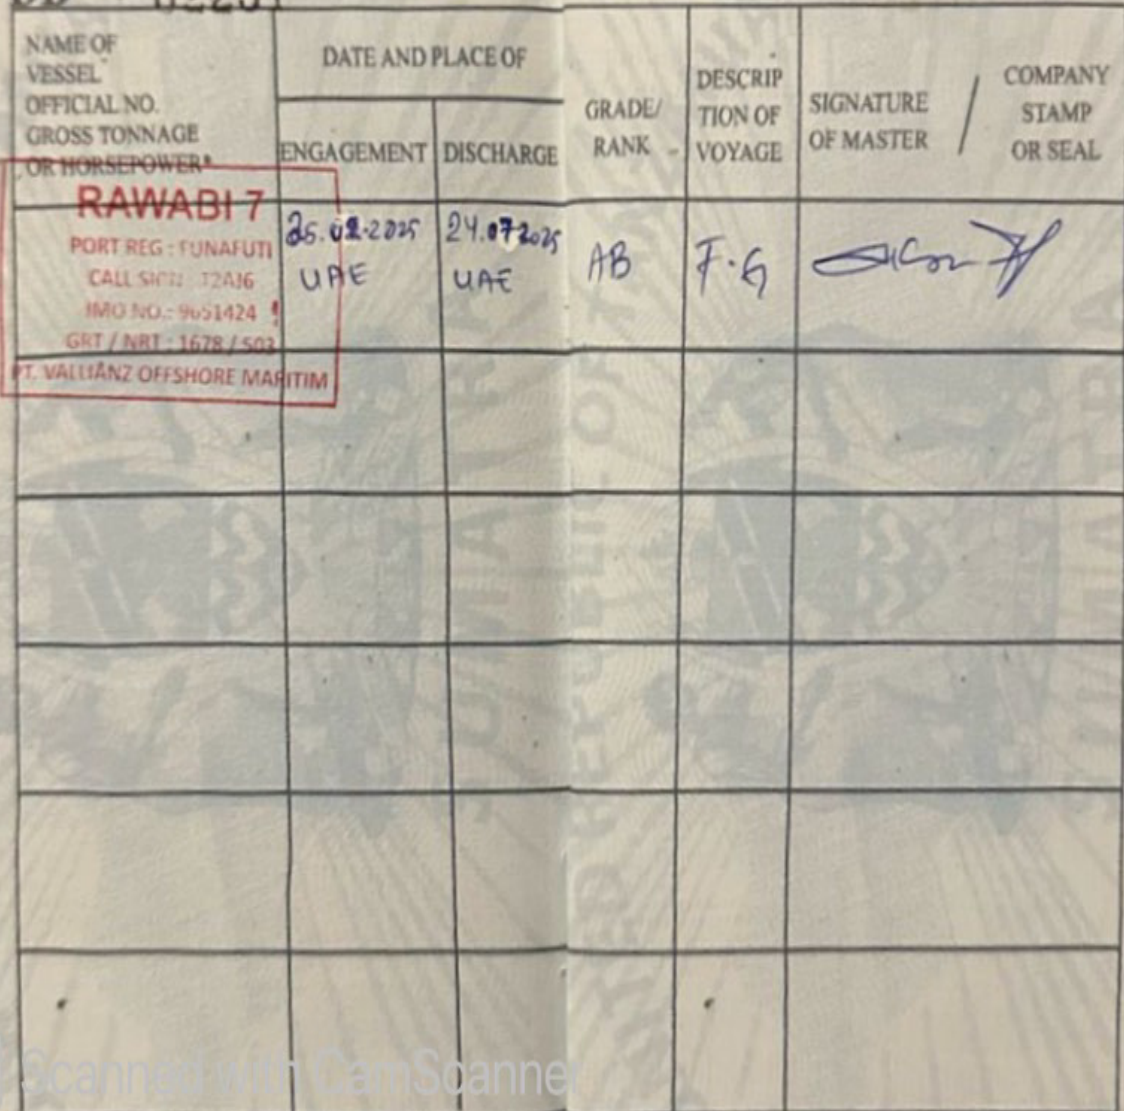 NAME OF
VESSEL
OFFICIAL NO.
GROSS TONNAGE
OR HORSEPOWER*
DATE AND PLACE OF
ENGAGEMENT
DISCHARGE
GRADE/
RANK
DESCRIP
TION OF
VOYAGE
SIGNATURE
OF MASTER
/
COMPANY
STAMP
OR SEAL
RAWABI 7
PORT REG : FUNAFUTI
CALL SIGN : T2AJ6
IMO NO.: 9651424
GRT / NRT : 1678 / 503
PT. VALLIANZ OFFSHORE MARITIM
2025
UAE
24.07.2025
UAE
AB
F.G
UNITED REPUBLIC OF
Scanned with CamScanner